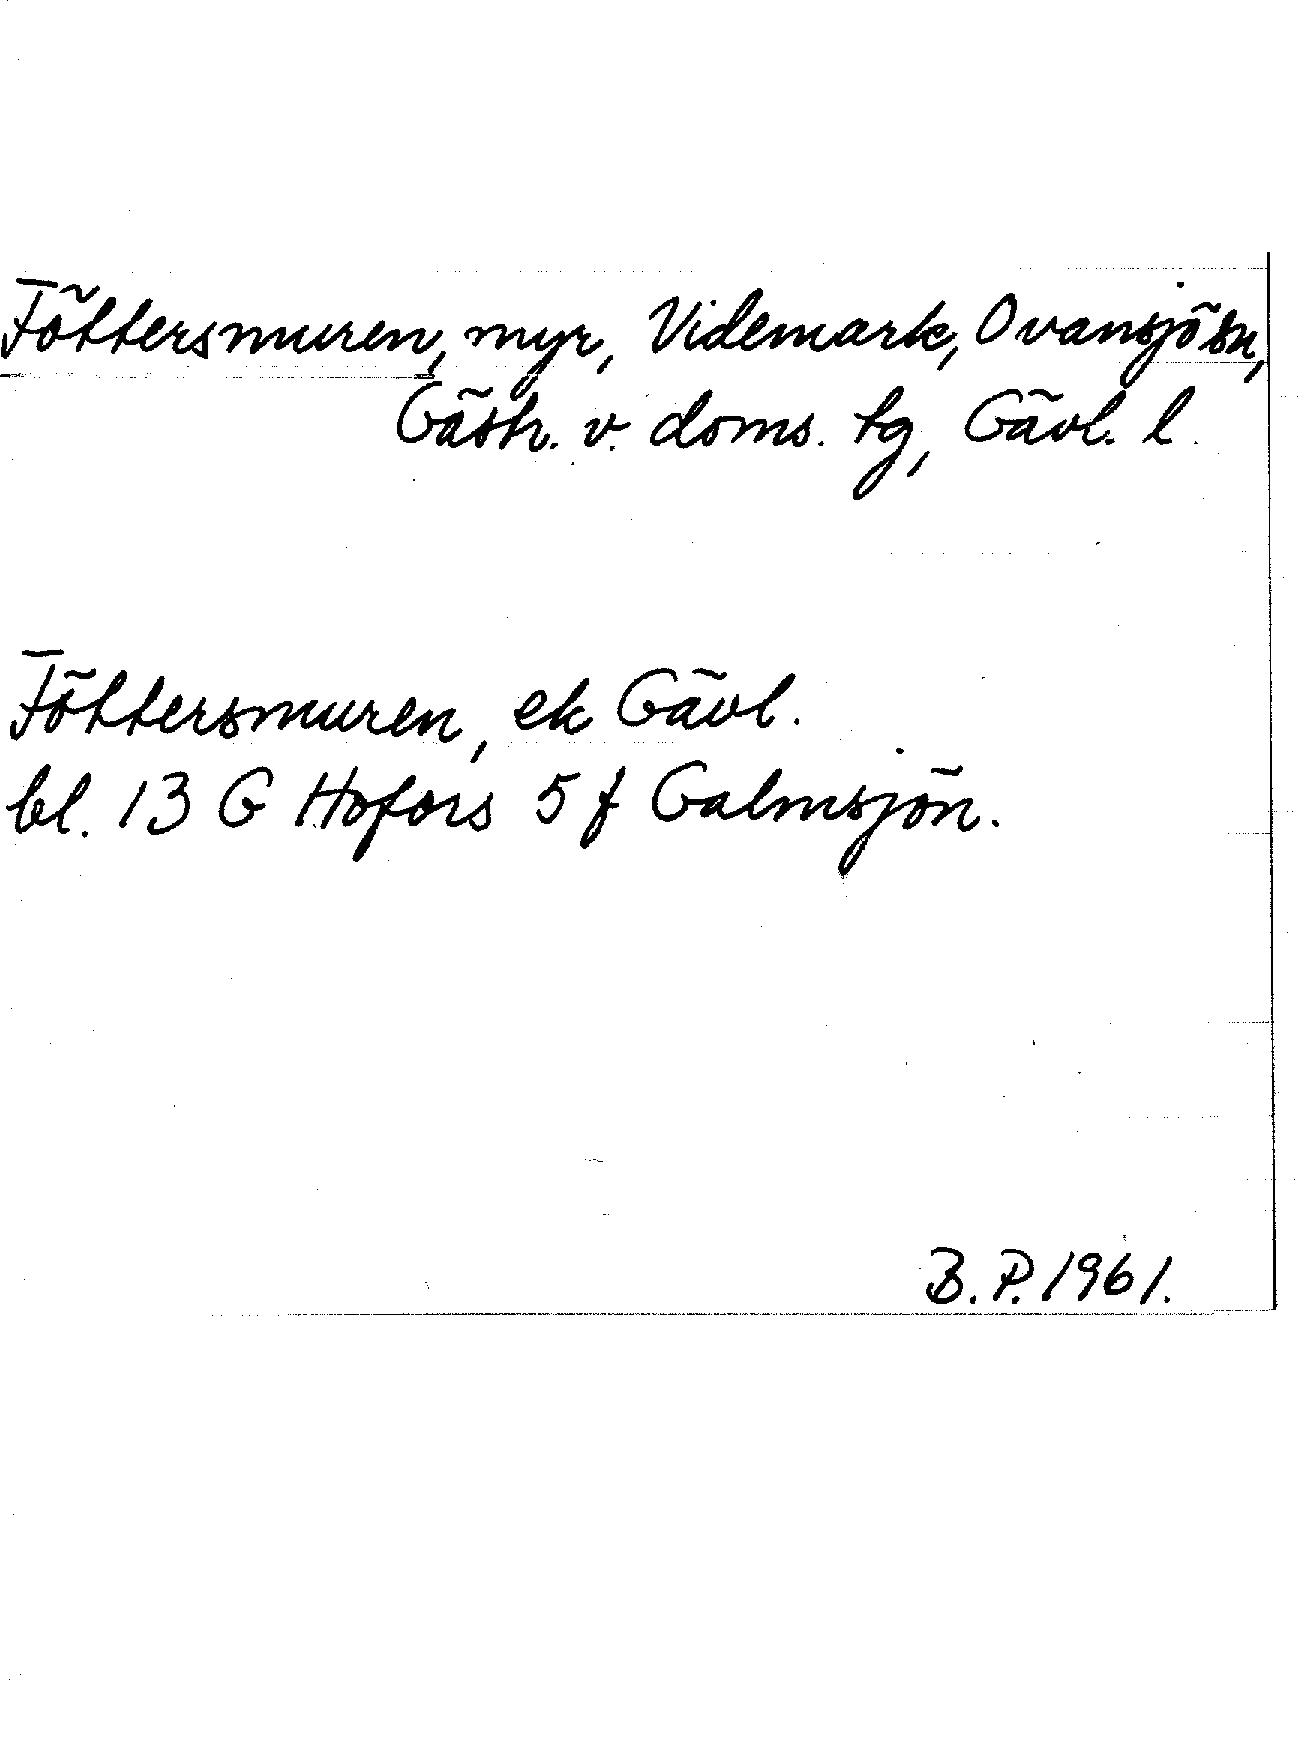 Töttersmuren, myr, Videmark, Ovansjö sn,
Gästr. v. doms. tg, Gävl. l.
Töttersmuren, ek Gävl.
bl. 13 G Hofors 5 f Galmsjön.
B. P. 1961.